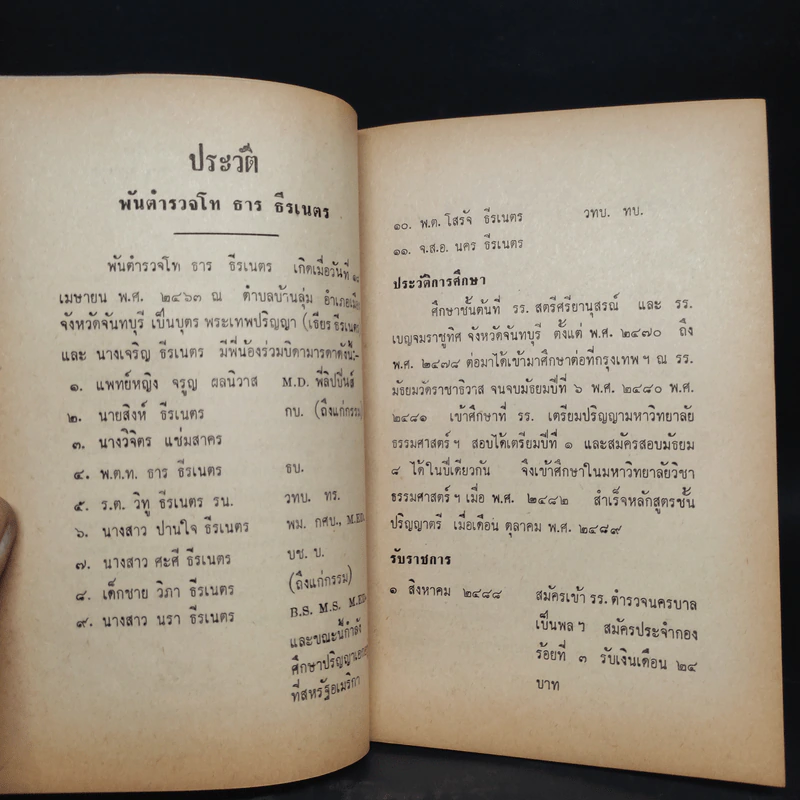 ประวัติ
พันตำรวจโท ธาร ธีรเนตร
พันตำรวจโท ธาร ธีรเนตร เกิดเมื่อวันที่
เมษายน พ.ศ. ๒๔๖๓ ณ ตำบลบ้านลุ่ม อำเภอเมือ
จังหวัดจันทบุรี เป็นบุตร พระเทพปริญญา (เธียร ธีรเนต
และ นางเจริญ ธีรเนตร มีพี่น้องร่วมบิดามารดาดังนี้:-
๑. แพทย์หญิง จรูญ ผลนิวาส M.D. ฟิลิปปินส์
๒. นายสิงห์ ธีรเนตร กบ. (ถึงแก่กรรม)
๓. นางวิจิตร แช่มสาคร
๔. พ.ต.ท. ธาร ธีรเนตร ธบ.
๕. ร.ต. วิทู ธีรเนตร รน. วทบ. ทร.
๖. นางสาว ปานใจ ธีรเนตร พม. กศบ., M.ED.
๗. นางสาว ศะศี ธีรเนตร บช. บ.
๘. เด็กชาย วิภา ธีรเนตร (ถึงแก่กรรม)
๙. นางสาว นรา ธีรเนตร B.S. M.S. M.ED.
และขณะนี้กำลัง
ศึกษาปริญญาเอกอยู่
ที่สหรัฐอเมริกา
๑๐. พ.ต. โสรัจ ธีรเนตร วทบ. ทบ.
๑๑. จ.ส.อ. นคร ธีรเนตร
ประวัติการศึกษา
ศึกษาชั้นต้นที่ รร. สตรีศรียานุสรณ์ และ รร.
เบญจมราชูทิศ จังหวัดจันทบุรี ตั้งแต่ พ.ศ. ๒๔๗๐ ถึง
พ.ศ. ๒๔๗๘ ต่อมาได้เข้ามาศึกษาต่อที่กรุงเทพ ฯ ณ รร.
มัธยมวัดราชาธิวาส จนจบมัธยมปีที่ ๖ พ.ศ. ๒๔๘๐ พ.ศ.
๒๔๘๑ เข้าศึกษาที่ รร. เตรียมปริญญามหาวิทยาลัย
ธรรมศาสตร์ ฯ สอบได้เตรียมปีที่ ๑ และสมัครสอบมัธยม
๘ ได้ในปีเดียวกัน จึงเข้าศึกษาในมหาวิทยาลัยวิชา
ธรรมศาสตร์ ฯ เมื่อ พ.ศ. ๒๔๘๒ สำเร็จหลักสูตรชั้น
ปริญญาตรี เมื่อเดือน ตุลาคม พ.ศ. ๒๔๘๙
รับราชการ
๑ สิงหาคม ๒๔๘๘ สมัครเข้า รร. ตำรวจนครบาล
เป็นพลฯ สมัครประจำกอง
ร้อยที่ ๓ รับเงินเดือน ๒๔
บาท